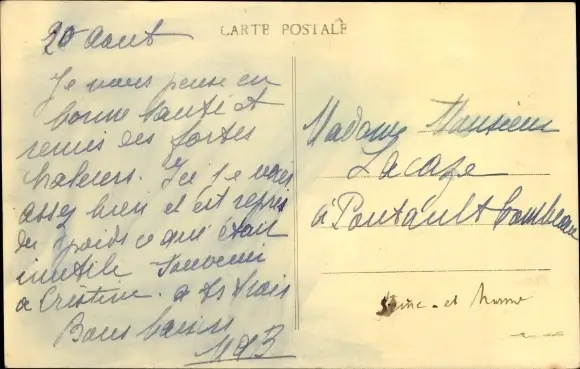 CARTE POSTALE
20 Aout
Je vous pense en
bonne santé et
remis des fortes
chaleurs. Ici je vais
assez bien et ai repris
du poids ce qui était
inutile Souvenir
a Cristine. a
Bons baisers
Madame Monsieur
Lacaze
à Pontault Combeau
Seine-et Marne